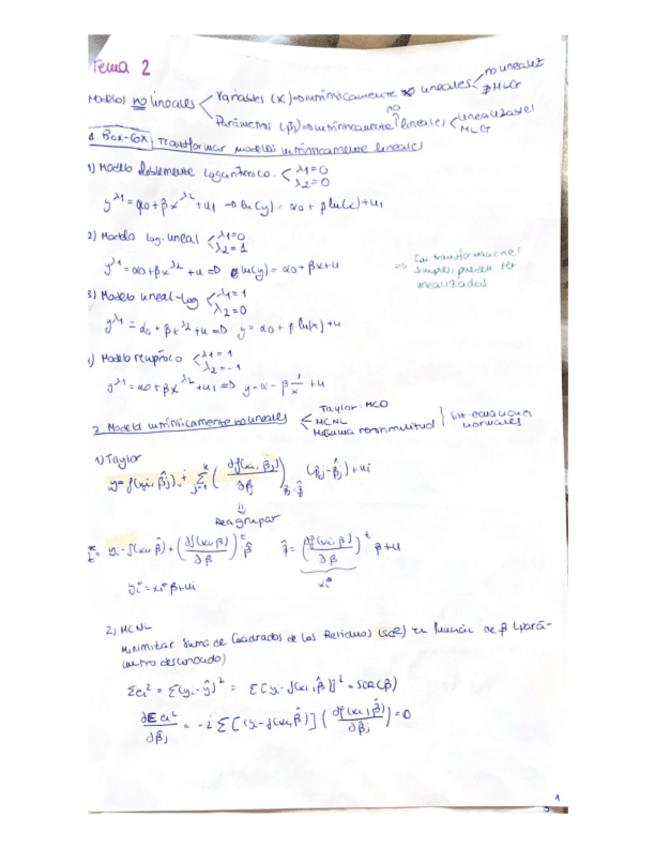 Tema 2
Modelos no lineales < Variables (X) => intrínsicamente lineales < no linealiz
∄ MLG
Parámetros (βj) => intrínsicamente no lineales < linealizables
MLG
1. Box-Cox, Transformar modelos intrínsicamente lineales
1) Modelo doblemente logarítmico < λ1=0
λ2=0
y^λ1 = α0 + βx^λ2 + u1 => ln(y) = α0 + β ln(x) + u1
2) Modelo log-lineal < λ1=0
λ2=1
y^λ1 = α0 + βx^λ2 + u => ln(y) = α0 + βx + u
=> Con transformaciones
simples pueden ser
linealizados
3) Modelo lineal-log < λ1=1
λ2=0
y^λ1 = α0 + βx^λ2 + u => y = α0 + β ln(x) + u
4) Modelo recíproco < λ1=1
λ2=-1
y^λ1 = α0 + βx^λ2 + u1 => y = α - β 1/x + u
2. Modelos intrínsicamente no lineales < Taylor: MCO
MCNL
Máxima verosimilitud } Sist. ecuaciones
normales
1) Taylor
y = f(xi, β̂j) + Σ j=1 k (∂f(xi, βj)/∂βj) βj=β̂j (βj - β̂j) + ui
⇓
Reagrupar
yi - f(xi, β̂) + (∂f(xi, β)/∂β)^t β̂ = (∂f(xi, β)/∂β)^t β + u
xi°
yi° = xi° β + ui
2) MCNL
Minimizar Suma de Cuadrados de los Residuos (SCR) en función de β (pará-
metro desconocido)
Σei² = Σ(yi - ŷ)² = Σ[yi - f(xi, β̂)]² = SCR(β)
∂Σei²/∂β̂j = -2 Σ[(yi - f(xi, β̂)] (∂f(xi, β̂)/∂β̂j) = 0